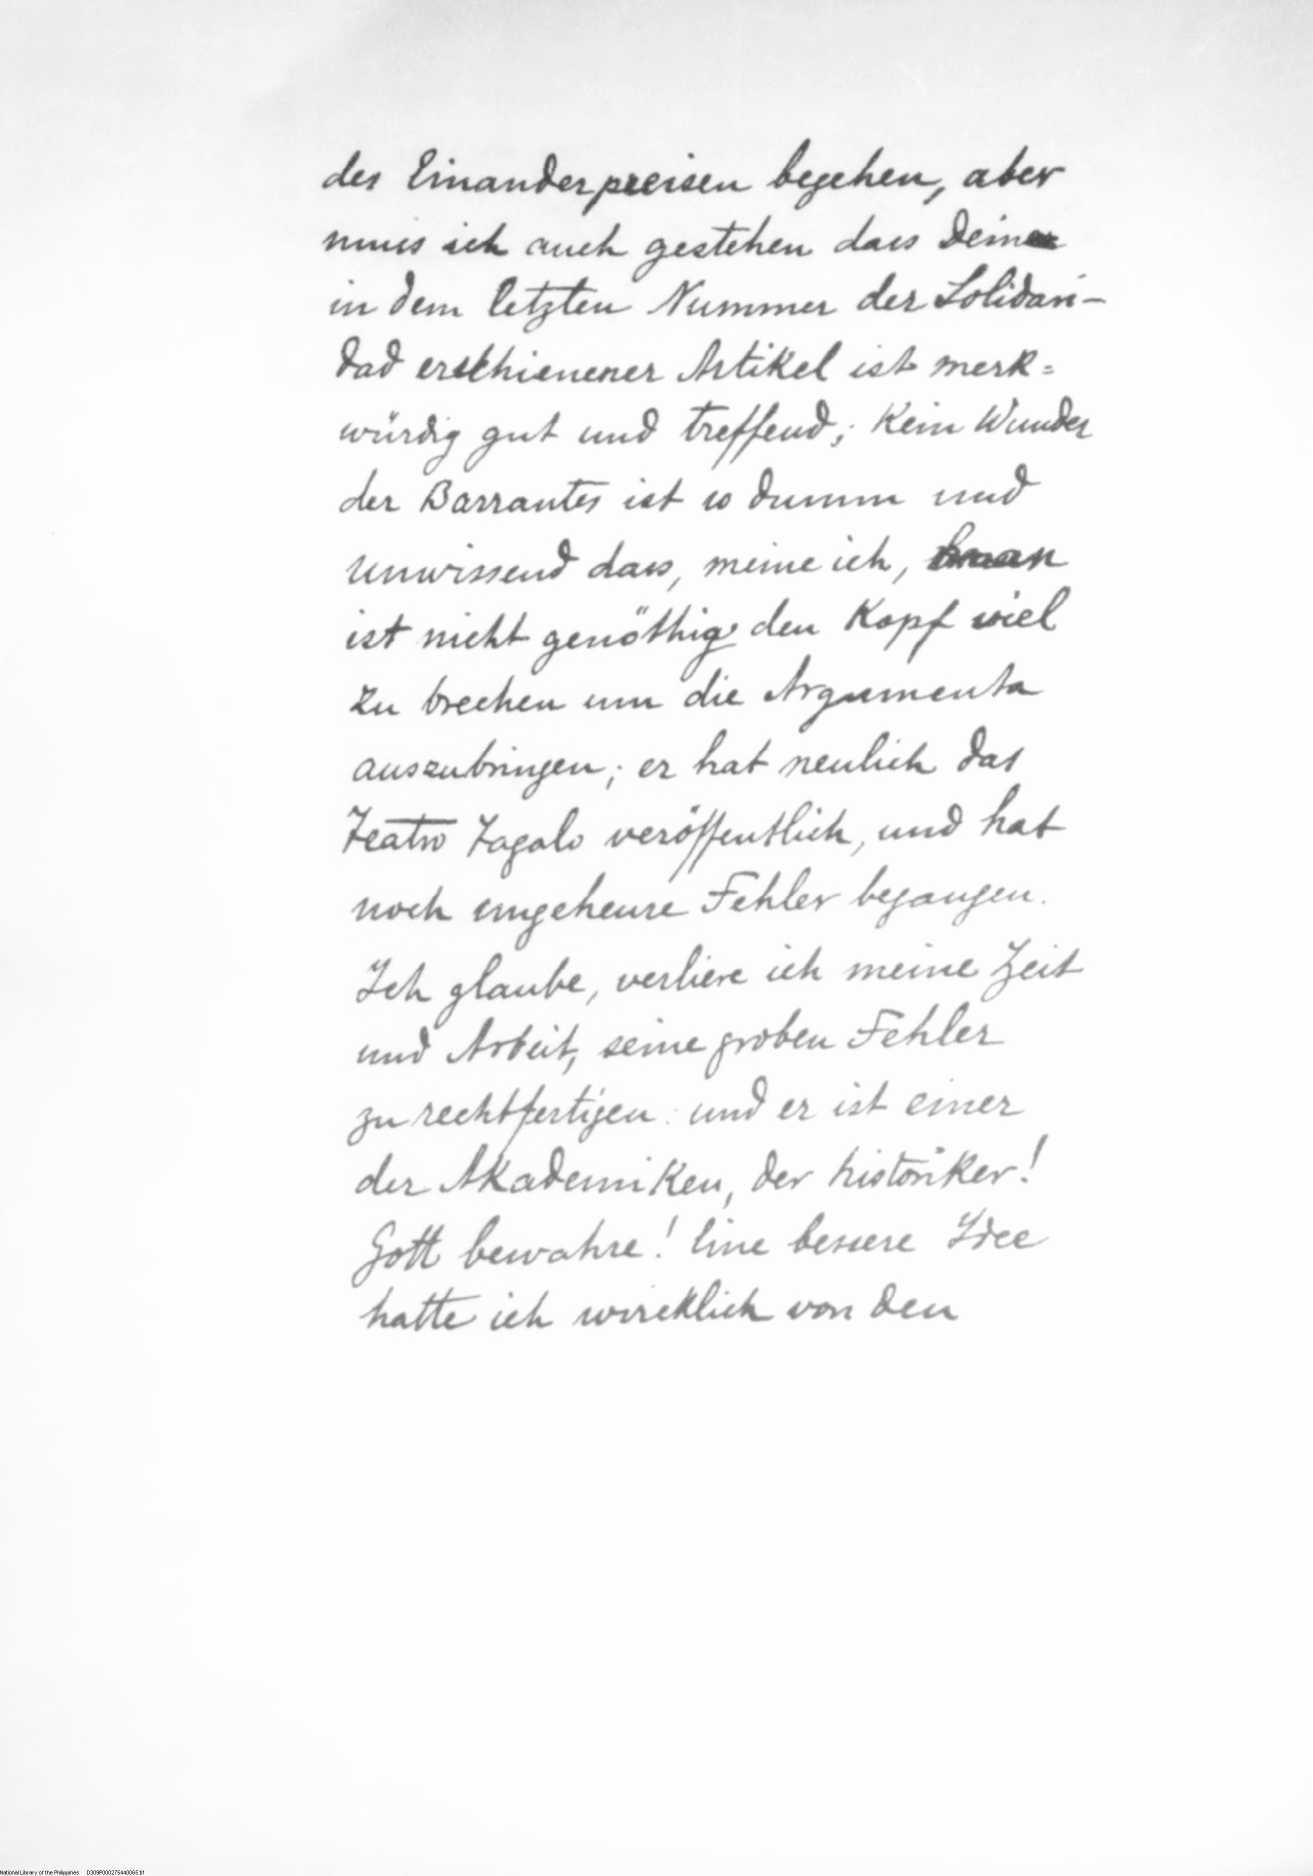 des Einanderpreisen begehen, aber
muss ich auch gestehen dass Dein
in dem letzten Nummer der Solidari-
dad erschienener Artikel ist merk=
würdig gut und treffend; kein Wunder
der Barrantes ist so dumm und
unwissend dass, meine ich, man
ist nicht genöthig den Kopf viel
zu brechen um die Argumenta
auszubringen; er hat neulich das
Teatro Tagalo veröffentlich, und hat
noch ungeheure Fehler begangen.
Ich glaube, verliere ich meine Zeit
und Arbeit, seine groben Fehler
zu rechtfertigen. und er ist einer
der Akademiken, der historiker!
Gott bewahre! Eine bessere Idee
hatte ich wireklich von den
National Library of the Philippines